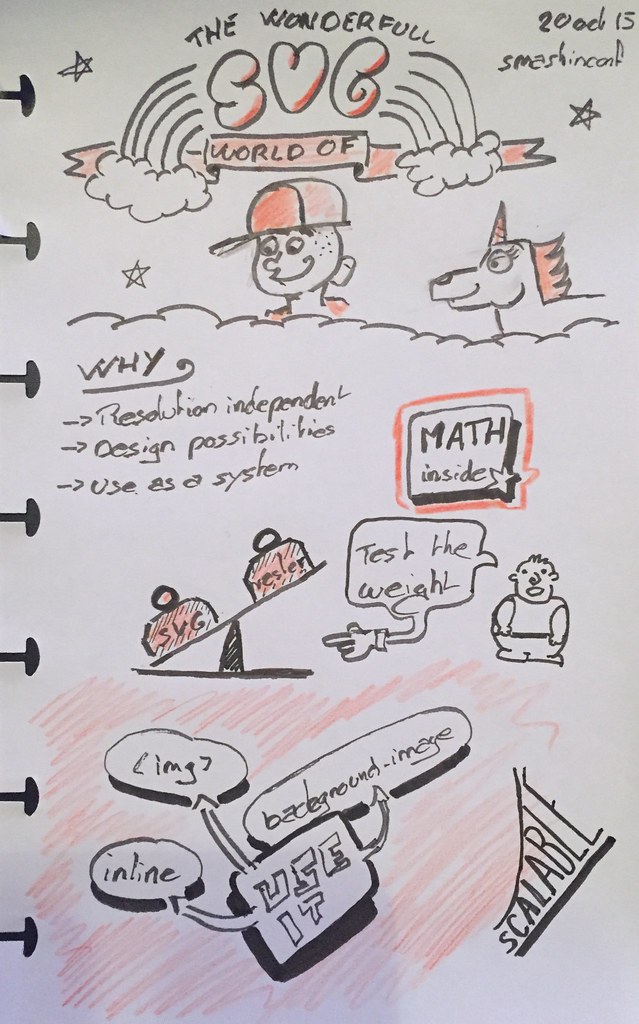 THE WONDERFULL
20 oct 15
smashinconf
SVG
WORLD OF
WHY
-> Resolution independent
-> Design possibilities
-> Use as a system
MATH
inside
Test the
weight
SVG
<img>
background-image
inline
USE
IT
SCALABLE